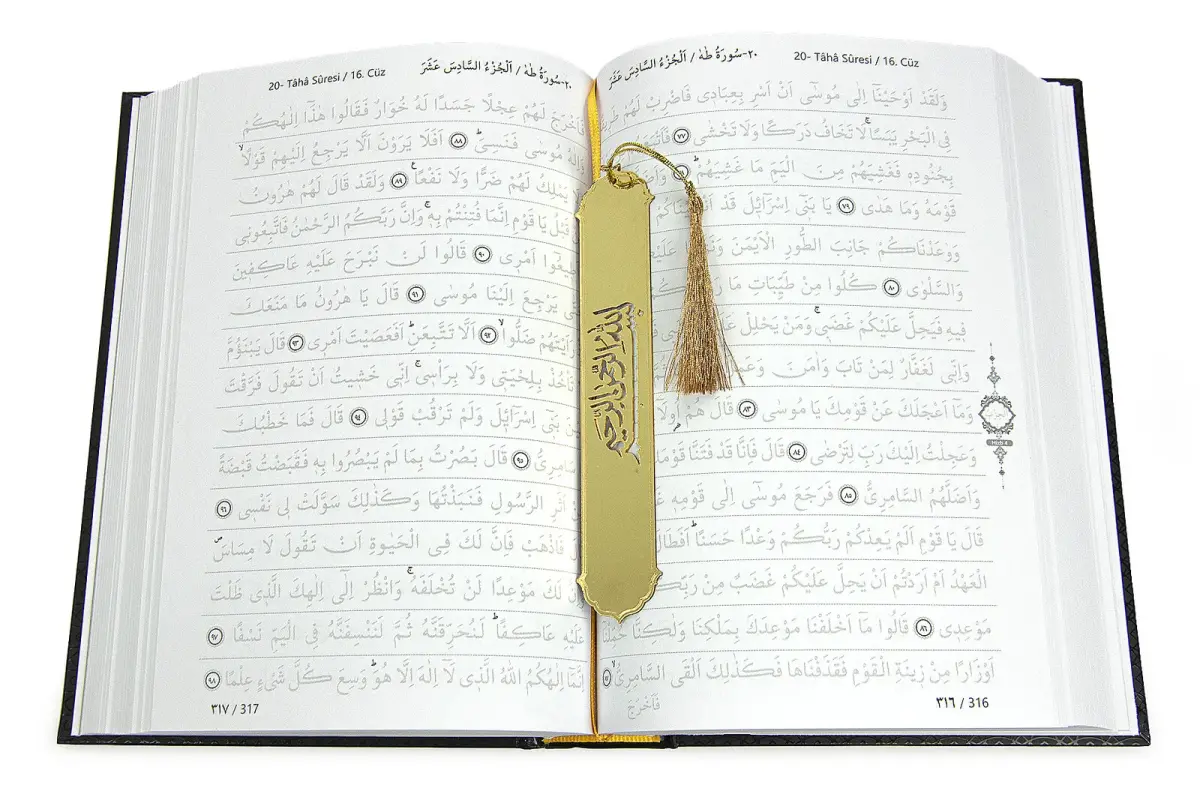 ٢٠-سُورَةُ طٰهٰ / اَلْجُزْءُ السَّادِسَ عَشَرَ 20- Tâhâ Sûresi / 16. Cüz
وَلَقَدْ اَوْحَيْنَٓا اِلٰى مُوسٰٓى اَنْ اَسْرِ بِعِبَادٖى فَاضْرِبْ لَهُمْ
فِى الْبَحْرِ يَبَسًاۙ لَا تَخَافُ دَرَكًا وَلَا تَخْشٰى ﴿٧٧﴾
بِجُنُودِهٖ فَغَشِيَهُمْ مِنَ الْيَمِّ مَا غَشِيَهُمْ
قَوْمَهُ وَمَا هَدٰى ﴿٧٩﴾ يَا بَنٖٓى اِسْرَٓائٖلَ قَدْ
وَوٰعَدْنَاكُمْ جَانِبَ الطُّورِ الْاَيْمَنَ
وَالسَّلْوٰى ﴿٨٠﴾ كُلُوا مِنْ طَيِّبَاتِ مَا
فٖيهِ فَيَحِلَّ عَلَيْكُمْ غَضَبٖىۚ وَمَنْ يَحْلِلْ
وَاِنّٖى لَغَفَّارٌ لِمَنْ تَابَ وَاٰمَنَ
وَمَٓا اَعْجَلَكَ عَنْ قَوْمِكَ يَا مُوسٰى ﴿٨٣﴾ قَالَ هُمْ
وَعَجِلْتُ اِلَيْكَ رَبِّ لِتَرْضٰى ﴿٨٤﴾ قَالَ فَاِنَّا قَدْ فَتَنَّا
وَاَضَلَّهُمُ السَّامِرِىُّ ﴿٨٥﴾ فَرَجَعَ مُوسٰٓى اِلٰى قَوْمِهٖ
قَالَ يَا قَوْمِ اَلَمْ يَعِدْكُمْ رَبُّكُمْ وَعْدًا حَسَنًاؕ اَفَطَالَ
الْعَهْدُ اَمْ اَرَدْتُمْ اَنْ يَحِلَّ عَلَيْكُمْ غَضَبٌ مِنْ
مَوْعِدٖى ﴿٨٦﴾ قَالُوا مَٓا اَخْلَفْنَا مَوْعِدَكَ بِمَلْكِنَا وَلٰكِنَّا حُمِّلْنَٓا
اَوْزَارًا مِنْ زٖينَةِ الْقَوْمِ فَقَذَفْنَاهَا فَكَذٰلِكَ اَلْقَى السَّامِرِىُّۙ
فَاَخْرَجَ
٣١٦ / 316
بسم الله الرحمن الرحيم
20- Tâhâ Sûresi / 16. Cüz ٢٠-سُورَةُ طٰهٰ / اَلْجُزْءُ السَّادِسَ عَشَرَ
فَاَخْرَجَ لَهُمْ عِجْلًا جَسَدًا لَهُ خُوَارٌ فَقَالُوا هٰذَٓا اِلٰهُكُمْ
وَاِلٰهُ مُوسٰى فَنَسِىَؕ ﴿٨٨﴾ اَفَلَا يَرَوْنَ اَلَّا يَرْجِعُ اِلَيْهِمْ قَوْلًاۙ
يَمْلِكُ لَهُمْ ضَرًّا وَلَا نَفْعًاࣖ ﴿٨٩﴾ وَلَقَدْ قَالَ لَهُمْ هٰرُونُ
قَبْلُ يَا قَوْمِ اِنَّمَا فُتِنْتُمْ بِهٖۚ وَاِنَّ رَبَّكُمُ الرَّحْمٰنُ فَاتَّبِعُونٖى
اَمْرٖى ﴿٩٠﴾ قَالُوا لَنْ نَبْرَحَ عَلَيْهِ عَاكِفٖينَ
يَرْجِعَ اِلَيْنَا مُوسٰى ﴿٩١﴾ قَالَ يَا هٰرُونُ مَا مَنَعَكَ
رَاَيْتَهُمْ ضَلُّواۙ ﴿٩٢﴾ اَلَّا تَتَّبِعَنِؕ اَفَعَصَيْتَ اَمْرٖى ﴿٩٣﴾ قَالَ يَبْنَؤُمَّ
تَأْخُذْ بِلِحْيَتٖى وَلَا بِرَأْسٖىۚ اِنّٖى خَشٖيتُ اَنْ تَقُولَ فَرَّقْتَ
بَنٖٓى اِسْرَٓائٖلَ وَلَمْ تَرْقُبْ قَوْلٖى ﴿٩٤﴾ قَالَ فَمَا خَطْبُكَ
﴿٩٥﴾ قَالَ بَصُرْتُ بِمَا لَمْ يَبْصُرُوا بِهٖ فَقَبَضْتُ قَبْضَةً
اَثَرِ الرَّسُولِ فَنَبَذْتُهَا وَكَذٰلِكَ سَوَّلَتْ لٖى نَفْسٖى ﴿٩٦﴾
فَاذْهَبْ فَاِنَّ لَكَ فِى الْحَيٰوةِ اَنْ تَقُولَ لَا مِسَاسَࣕ
لَكَ مَوْعِدًا لَنْ تُخْلَفَهُۚ وَانْظُرْ اِلٰٓى اِلٰهِكَ الَّذٖى ظَلْتَ
عَلَيْهِ عَاكِفًاؕ لَنُحَرِّقَنَّهُ ثُمَّ لَنَنْسِفَنَّهُ فِى الْيَمِّ نَسْفًا ﴿٩٧﴾
اِنَّمَٓا اِلٰهُكُمُ اللّٰهُ الَّذٖى لَٓا اِلٰهَ اِلَّا هُوَؕ وَسِعَ كُلَّ شَىْءٍ عِلْمًا ﴿٩٨﴾
٣١٧ / 317